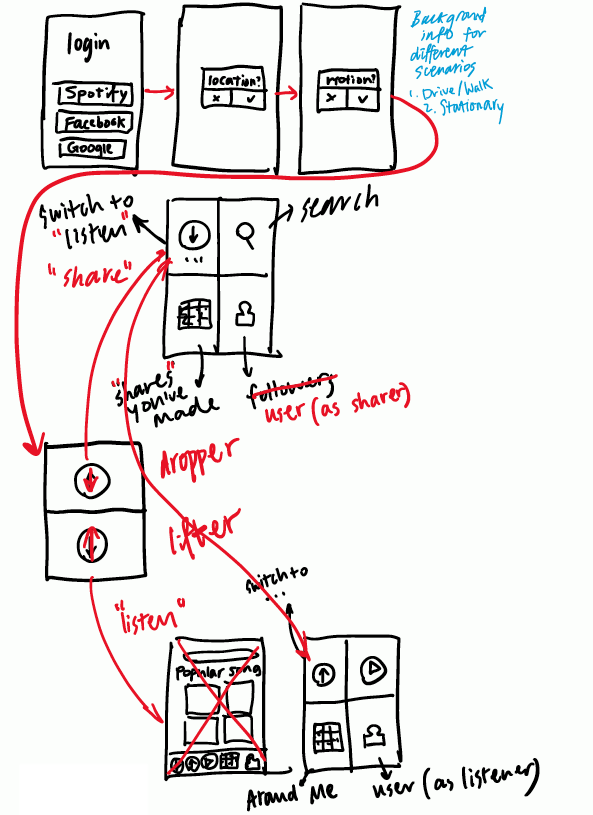 login
Spotify
Facebook
Google
location?
x ✓
motion?
x ✓
Background
info for
different
scenarios
1. Drive/Walk
2. Stationary
switch to
"listen"
search
"share"
...
"shares"
you've
made
followers
user (as sharer)
dropper
lifter
"listen"
switch to
...
Popular song
Around Me
user (as listener)